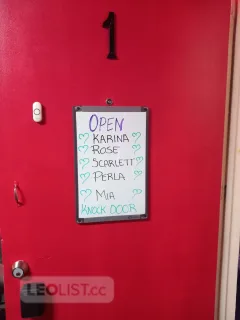 1
OPEN
♡ KARINA ♡
♡ ROSE ♡
♡ SCARLETT ♡
♡ PERLA ♡
♡ MIA ♡
KNOCK DOOR
LEOLIST.cc